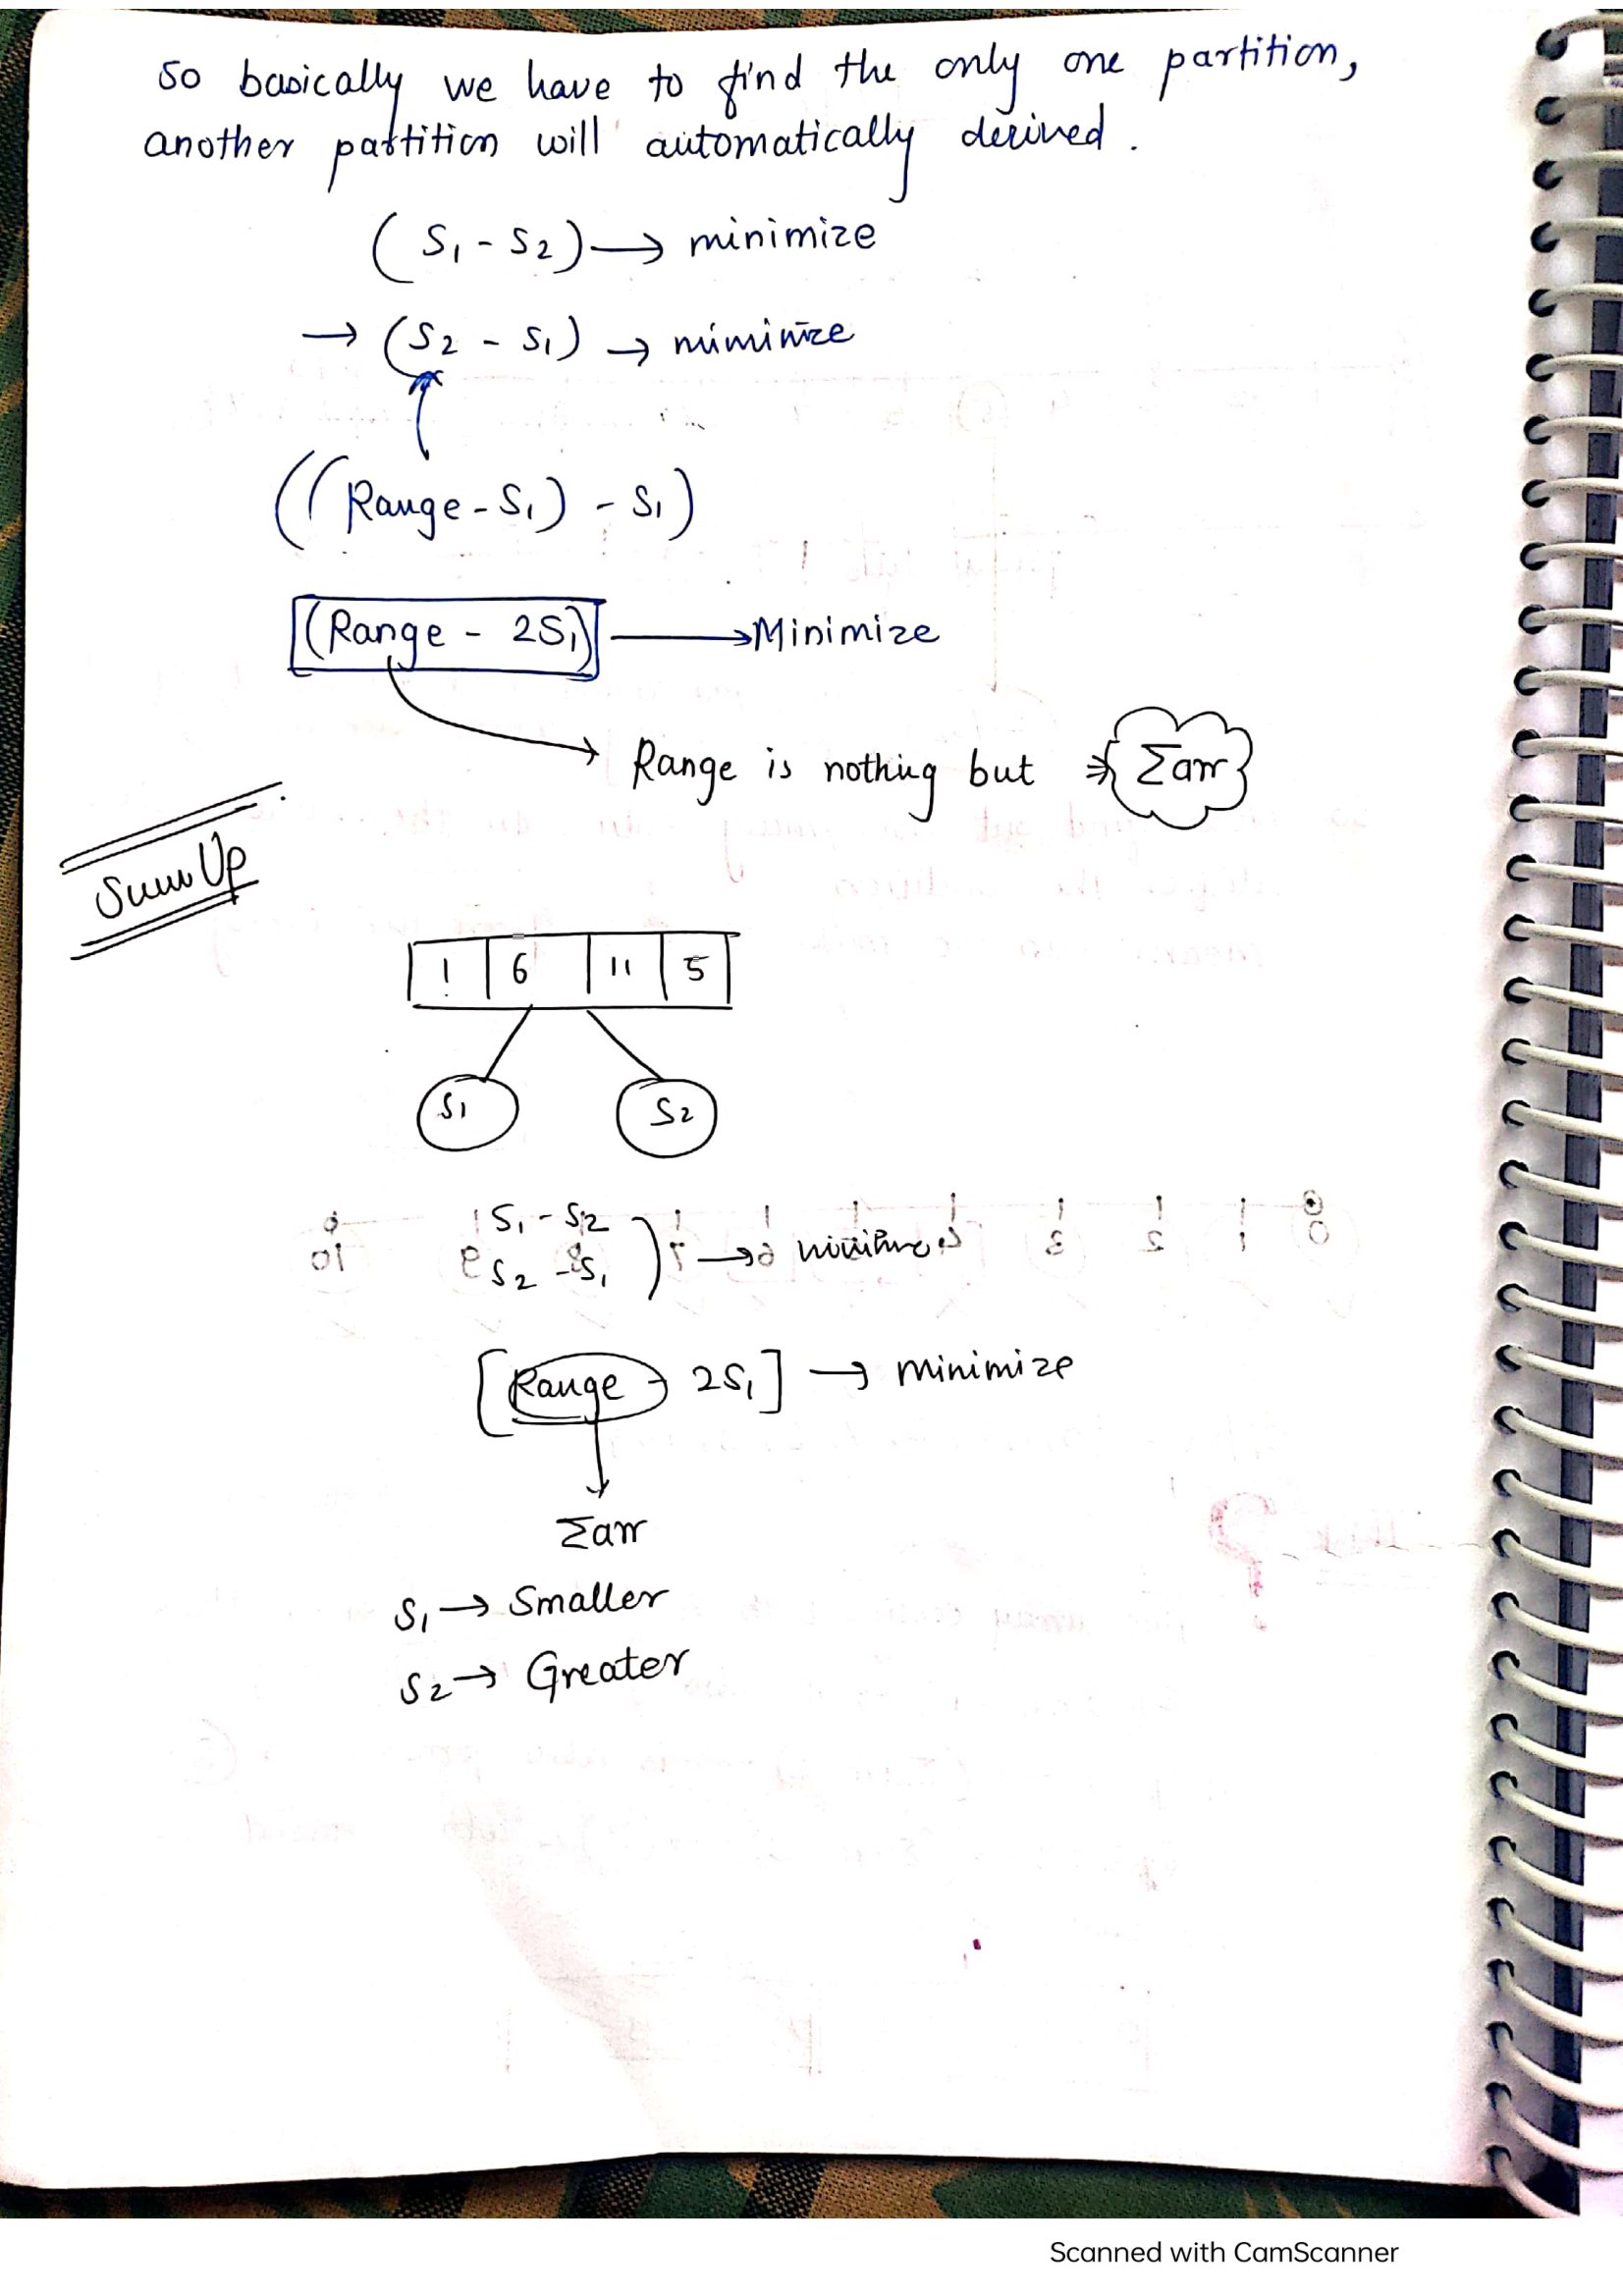 so basically we have to find the only one partition,
another partition will automatically derived.
(S1 - S2) → minimize
→ (S2 - S1) → minimize
((Range - S1) - S1)
(Range - 2S1) → Minimize
Range is nothing but ⇒ Σarr
Sum Up
1 6 11 5
S1 S2
S1 - S2
S2 - S1 ) → minimize
[Range - 2S1] → minimize
Σarr
S1 → Smaller
S2 → Greater
Scanned with CamScanner